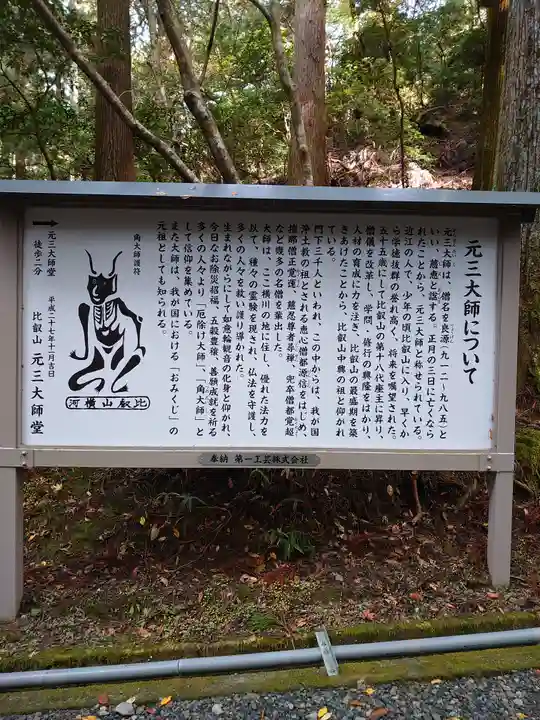 元三大師について
元三大師は、僧名を良源(九一二-九八五)と
いい、慈恵と諡する。正月の三日に亡くなら
れたことから、元三大師と称せられている。
近江の人で、少年の頃比叡山に入り、早くか
ら学徳抜群の誉れ高く、将来を嘱望された。
五十五歳にして比叡山の第十八代座主に昇り、
僧儀を改革し、学問、修行の興隆をはかり、
人材の育成に力を注ぎ、比叡山の最盛期を築
きあげたことから、比叡山中興の祖と仰がれ
ている。
門下三千人といわれ、この中からは、我が国
浄土教の祖とされる恵心僧都源信をはじめ、
檀那僧正覚運、慈忍尊者尋禅、兜卒僧都覚超
など幾多の名僧を輩出した。
大師は、ここ横川の地に住し、優れた法力を
以て、種々の霊験を現され、仏法を守護し、
多くの人々を救い護り導かれた。
生まれながらにして如意輪観音の化身と仰がれ、
今日なお除災招福、五穀豊穣、善願成就を祈る
多くの人々より「厄除け大師」、「角大師」と
して信仰を集めている。
また大師は、我が国における「おみくじ」の
元祖としても知られる。
角大師護符
比叡山横河
平成二十七年十一月吉日
比叡山 元三大師堂
元三大師堂
徒歩二分
奉納 第一工芸株式会社